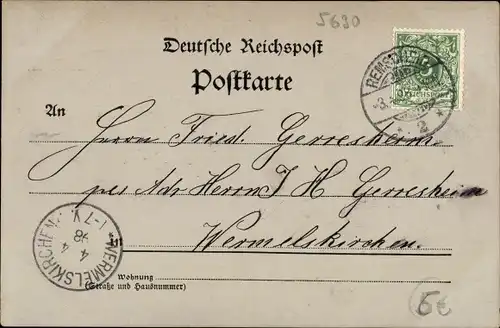 5690
Deutsche Reichspost
Postkarte
REMSCHEID
3.
* 2 *
5
An
Herrn Fried. Gerresheim
per Adr Herrn J H Gerresheim
in
Wermelskirchen.
WERMELSKIRCHEN
4
4
98
1-7V.
Wohnung
(Straße und Hausnummer)
6€